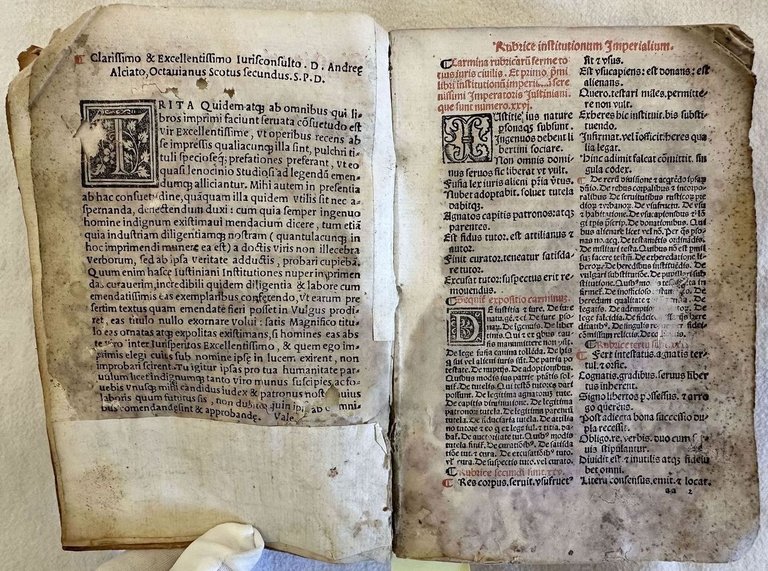 Clarissimo & Excellentissimo Iurisconsulto . D . Andreę
Alciato, Octauianus Scotus secundus. S. P. D.
IRITA Quidem atq; ab omnibus qui li-
bros imprimi faciunt seruata cõsuetudo est
vir Excellentissime, vt operibus recens ab
se impressis qualiacunq; illa sint, pulchri ti-
tuli speciosę; prefationes preferant, vt eo
quasi lenocinio Studiosi ad legendũ emen-
dumq; alliciantur. Mihi autem in presentia
ab hac consuetudine, quãquam illa quidem vtilis sit nec a-
spernanda, deflectendum duxi: cum quia semper ingenuo
homine indignum existimaui mendacium dicere, tum etiã
quia industriam diligentiamq; nostram (quantulacunq; in
hoc imprimendi munere ea est) a doctis viris non illecebra
verborum, sed ab ipsa veritate adductis, probari cupiebã.
Quum enim hasce Iustiniani Institutiones nuper imprimen
das curauerim, incredibili quidem diligentia & labore cum
emendatissimis eas exemplaribus conferendo, vt earum pre
sertim textus quam emendate fieri posset in Vulgus prodi-
ret, eas titulo nullo exornare volui: satis Magnifico titu-
lo eas ornatas atq; expolitas existimans, si homines eas abs
te viro inter Iurisperitos Excellentissimo, & quem ego im
primis elegi cuius sub nomine ipse in lucem exirent, non
improbari scirent. Tu igitur ipsas pro tua humanitate par-
uulum licet indignumq; tanto viro munus suscipies, ac fo-
uebis vnusq; mihi candidus iudex & patronus nostri huius
laboris quum futurus sis, non dubito quin ipsi ab omni-
bus comendandę sint & approbandę. Vale.
Rubrice institutionum Imperialium.
Carmina rubricarũ ferme to
tius iuris ciuilis. Et primo p̃mi
libri institutionũ imperii sere
nissimi Imperatoris Iustiniani.
que sunt numero.xxvj.
IUstitie, ius nature
psonaq; subsunt.
Ingenuos debent li
bertini sociare.
Non omnis domi
nus seruos sic liberat vt vult.
Fusia lex iuris alieni p̃ia v̓tus.
Nubet adoptabit. soluet tutela
dabitq;.
Agnatos capitis patronos: atq;
parentes.
Est fidus tutor. est attilianus &
autor.
Finit curator. teneatur satisda
re tutor.
Excusat tutor: suspectus erit re
mouendus.
Sequit expositio carminuz.
DE iustitia & iure. De iure
nature gẽt. & ciui. De iure pso-
narum. De ingenuis. De liber
tinis. Qui & ex q̃bus cau-
sis manumittere non possunt.
De lege fusia canina tollẽda. De his q
sui vel alieni iuris sũt. De patria po
testate. De nuptijs. De adoptionibus.
Quibus modis ius patrie ptãtis sol-
uit. De tutelis. Qui testo tutores dari
possunt. De legitima agnatorum tute.
De capitis diminutione. De legitima
patronorum tutela. De legitima parentũ
tutela. De fiduciaria tutela. De attilia
no tutore & eo q ex lege iul. & titia. da-
bat. De auctoritate tut. Quibus modis
tutela finit. De curatoribus. De satisda
tiõe tut. & cura. De excusatiõibus tutorum
vel cura. De suspectis tuto. vel curato.
Rubrice secundi sunt.xxv.
Res corpus. seruit. vsufructus
sit & vsus.
Est vsucapiens: est donans: est
alienans.
Quero. testari miles. permitte-
re non vult.
Exheres hic instituit. bis substi
tuendo.
Infirmat. vel īofficit: heres qua
lia legat.
Hinc adimit falcat cõmittit. sin
gula codex.
De rerũ diuisione & acq̃rẽdo ipsarum
dñio. De rebus corporalibus & incorpo-
ralibus. De seruitutibus rusticorum pre
diorum & vrbanorum. De vsufructu. De vsu
& habitatione. De vsucapionibus & lõ
gi tpis p̃scrip. De donationibus. Qui
bus alienare licet vel nõ. Per q̃s pso-
nas no. acq. De testamẽtis ordinãdis.
De militari testa. Quibus nõ est pmis
sum facere testm̃. De exheredatione li-
berorum. De heredibus instituẽdis. De
vulgari substitutione. De
De inofficioso
heredum qualitate
De legatis. De
lege falcidia. De fidei
diatibus. De singulis rebus p fidei-
cõmissum relictis. De
Rubrice tertij sunt
Fert intestatus. agnatis ter-
tul. & orfic.
Cognatis. gradibus. seruus liber
tus inherent.
Signo libertos possessus. & arro
go querens.
Post addicta bona successio du
pla recessit.
Obligo. re. verbis. duo cum s
uis stipulantur.
Diuidit est & inutilis atq; fideiu
bet omni.
Litera consensus, emit. & locat.
aa 2